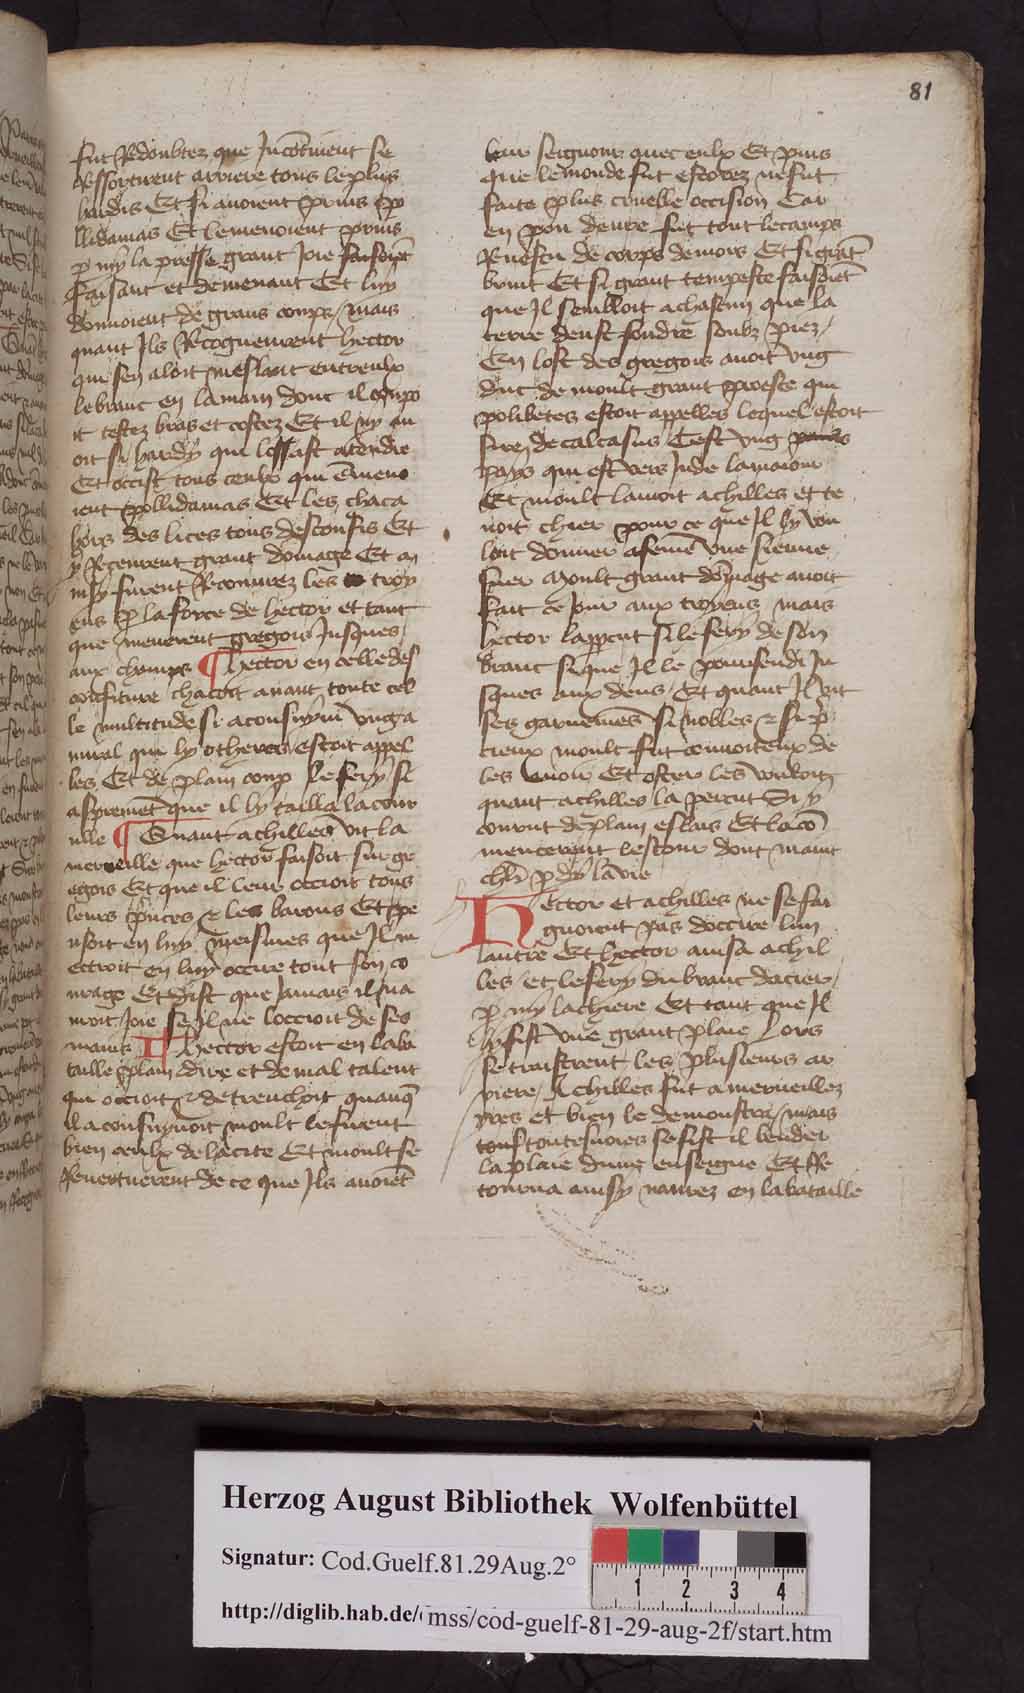 81
fut Redoubtez que Incōtinent se
Ressortirent arriere tous le plus
hardis Et si auoient prins po
llidamas Et lemenoient prins
p my la presse grant Joie faisoiēt
faisant et demenant Et luy
donnoient de grans coups / mais
quant Ils Recogneurent hector
qui sen aloit meslant entreulx
le branc en la main dont il coupo
it testez bras et costez Et il ny au
oit si hardy qui losast atendre
Et occist tous ceulx qui ēmeno
ient pollidamas Et les chaca
hors des lices tous desconfis Et
y Receurent grant domage Et an
insy furent Recouurez les troy
ens p la force de hector et tant
que menerent gregois Jusques
aux champs ¶ hector en celle des
confiture chacoit auant toute cel
le multitude si aconsuyui vng a
miral qui ly estoit appel
les Et de plain coup le fery si
aspremēt que il ly tailla la cour
aille ¶ Quant achilles vit la
merueille que hector faisoit sur gr
egois Et que il leur occioit tous
leurs princes & les barons Et pe
nsoit en luy meismes que Il m
ectroit en luy occire tout son co
urage Et dist que Jamais il na
uroit Joie se Il ne loccioit de ses
mains ¶ hector estoit en la ba
taille plain dire et de mal talent
qui occioit & detrenchoit quanq̄
il aconsuyuoit moult le firent
bien ceulx de la cite Et moult se
Reuertuerent de ce que Ils auoiēt
leur seignour auec eulx Et puis
que le monde fut estorez ne fut
faite plus cruelle occision Car
en peu deure fut tout le camps
Reuestu de corps de mors Et si grāt
bruit Et si grant tempeste faisoiēt
que Il sembloit a chascun que la
terre deust fondre soubz piez /
En lost des gregois auoit vng
duc de moult grant proeste qui
polibetez estoit appelles lequel estoit
sirez de calcasus Cest vng
pays qui est vers Inde la maiour
Et moult lamoit achilles et te
noit chier pour ce que Il ly vou
loit donner a femē vne sienne
suer Moult grant dōmage auoit
fait ce Jour aux troyens mais
hector lapercut si le fery de son
branc si que Il le pourfendi Ju
sques aux dens / Et quant Il vit
ses garnemēs si nobles & si p̄
cieux moult fut couuoiteux de
les auoir Et oster les vouloit
quant achilles la percut Si y
courut de plain eslais Et la cō
mencerent lestour dont maint
chlr̄ p dy la vie
Hector et achilles ne se fai
gnoient pas doccire lun
lautre Et hector auisa achil
les et le fery du branc dacier /
p my la chiere Et tant que Il
ly fist vne grant plaie Lors
se traistrent les plusieurs ar
riere / Achilles fut a merueillez
yres et bien le demonstra / mais
toutesuoies se fist il bender
la plaie dune enseigne Et sse
tourna ainsy naurez en la bataille
Herzog August Bibliothek Wolfenbüttel
Signatur: Cod.Guelf.81.29Aug.2°
http://diglib.hab.de/mss/cod-guelf-81-29-aug-2f/start.htm
1 2 3 4